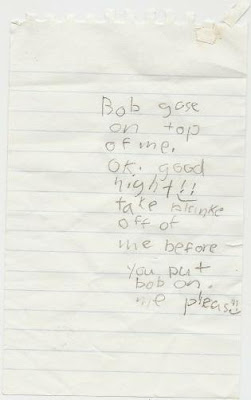 Bob gose
on top
of me.
OK. good
night!!
take blinke
off of
me before
you put
bob on.
me please!!